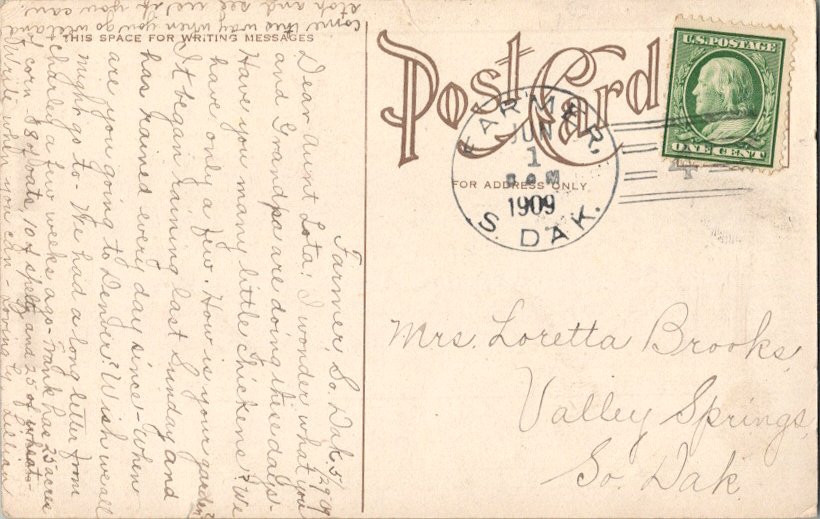 THIS SPACE FOR WRITING MESSAGES
Post Card
FOR ADDRESS ONLY
U.S. POSTAGE
ONE CENT
FARMER,
JUN
1
1909
S. DAK.
4
Mrs. Loretta Brooks,
Valley Springs,
So. Dak.
Farmer, So. Dak. 5/29 09
Dear Aunt Lota; I wonder what you
and Grandpa are doing these days-
Have you many little chickens? We
have only a few. How is your garden?
It began raining last Sunday and
has rained every day since- When
are you going to Denver? Wish we all
might go to- We had a long letter from
Charlea few weeks ago- Frank has 25 acres
of corn 38 of oats, 10 of speltz and 25 of wheat-
Write when you can- Loving ly Lillian
come this way when you go west and
stop and see us if you can.